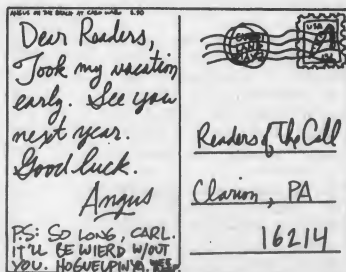 ANGUS ON THE BEACH AT CABO WABO 5.90
Dear Readers,
Took my vacation
early. See you
next year.
Good luck.
Angus
P.S: SO LONG, CARL.
IT'LL BE WIERD W/OUT
YOU. HOGUELPINYA.
CABO
WABO
USA
Readers of The Call
Clarion, PA
16214